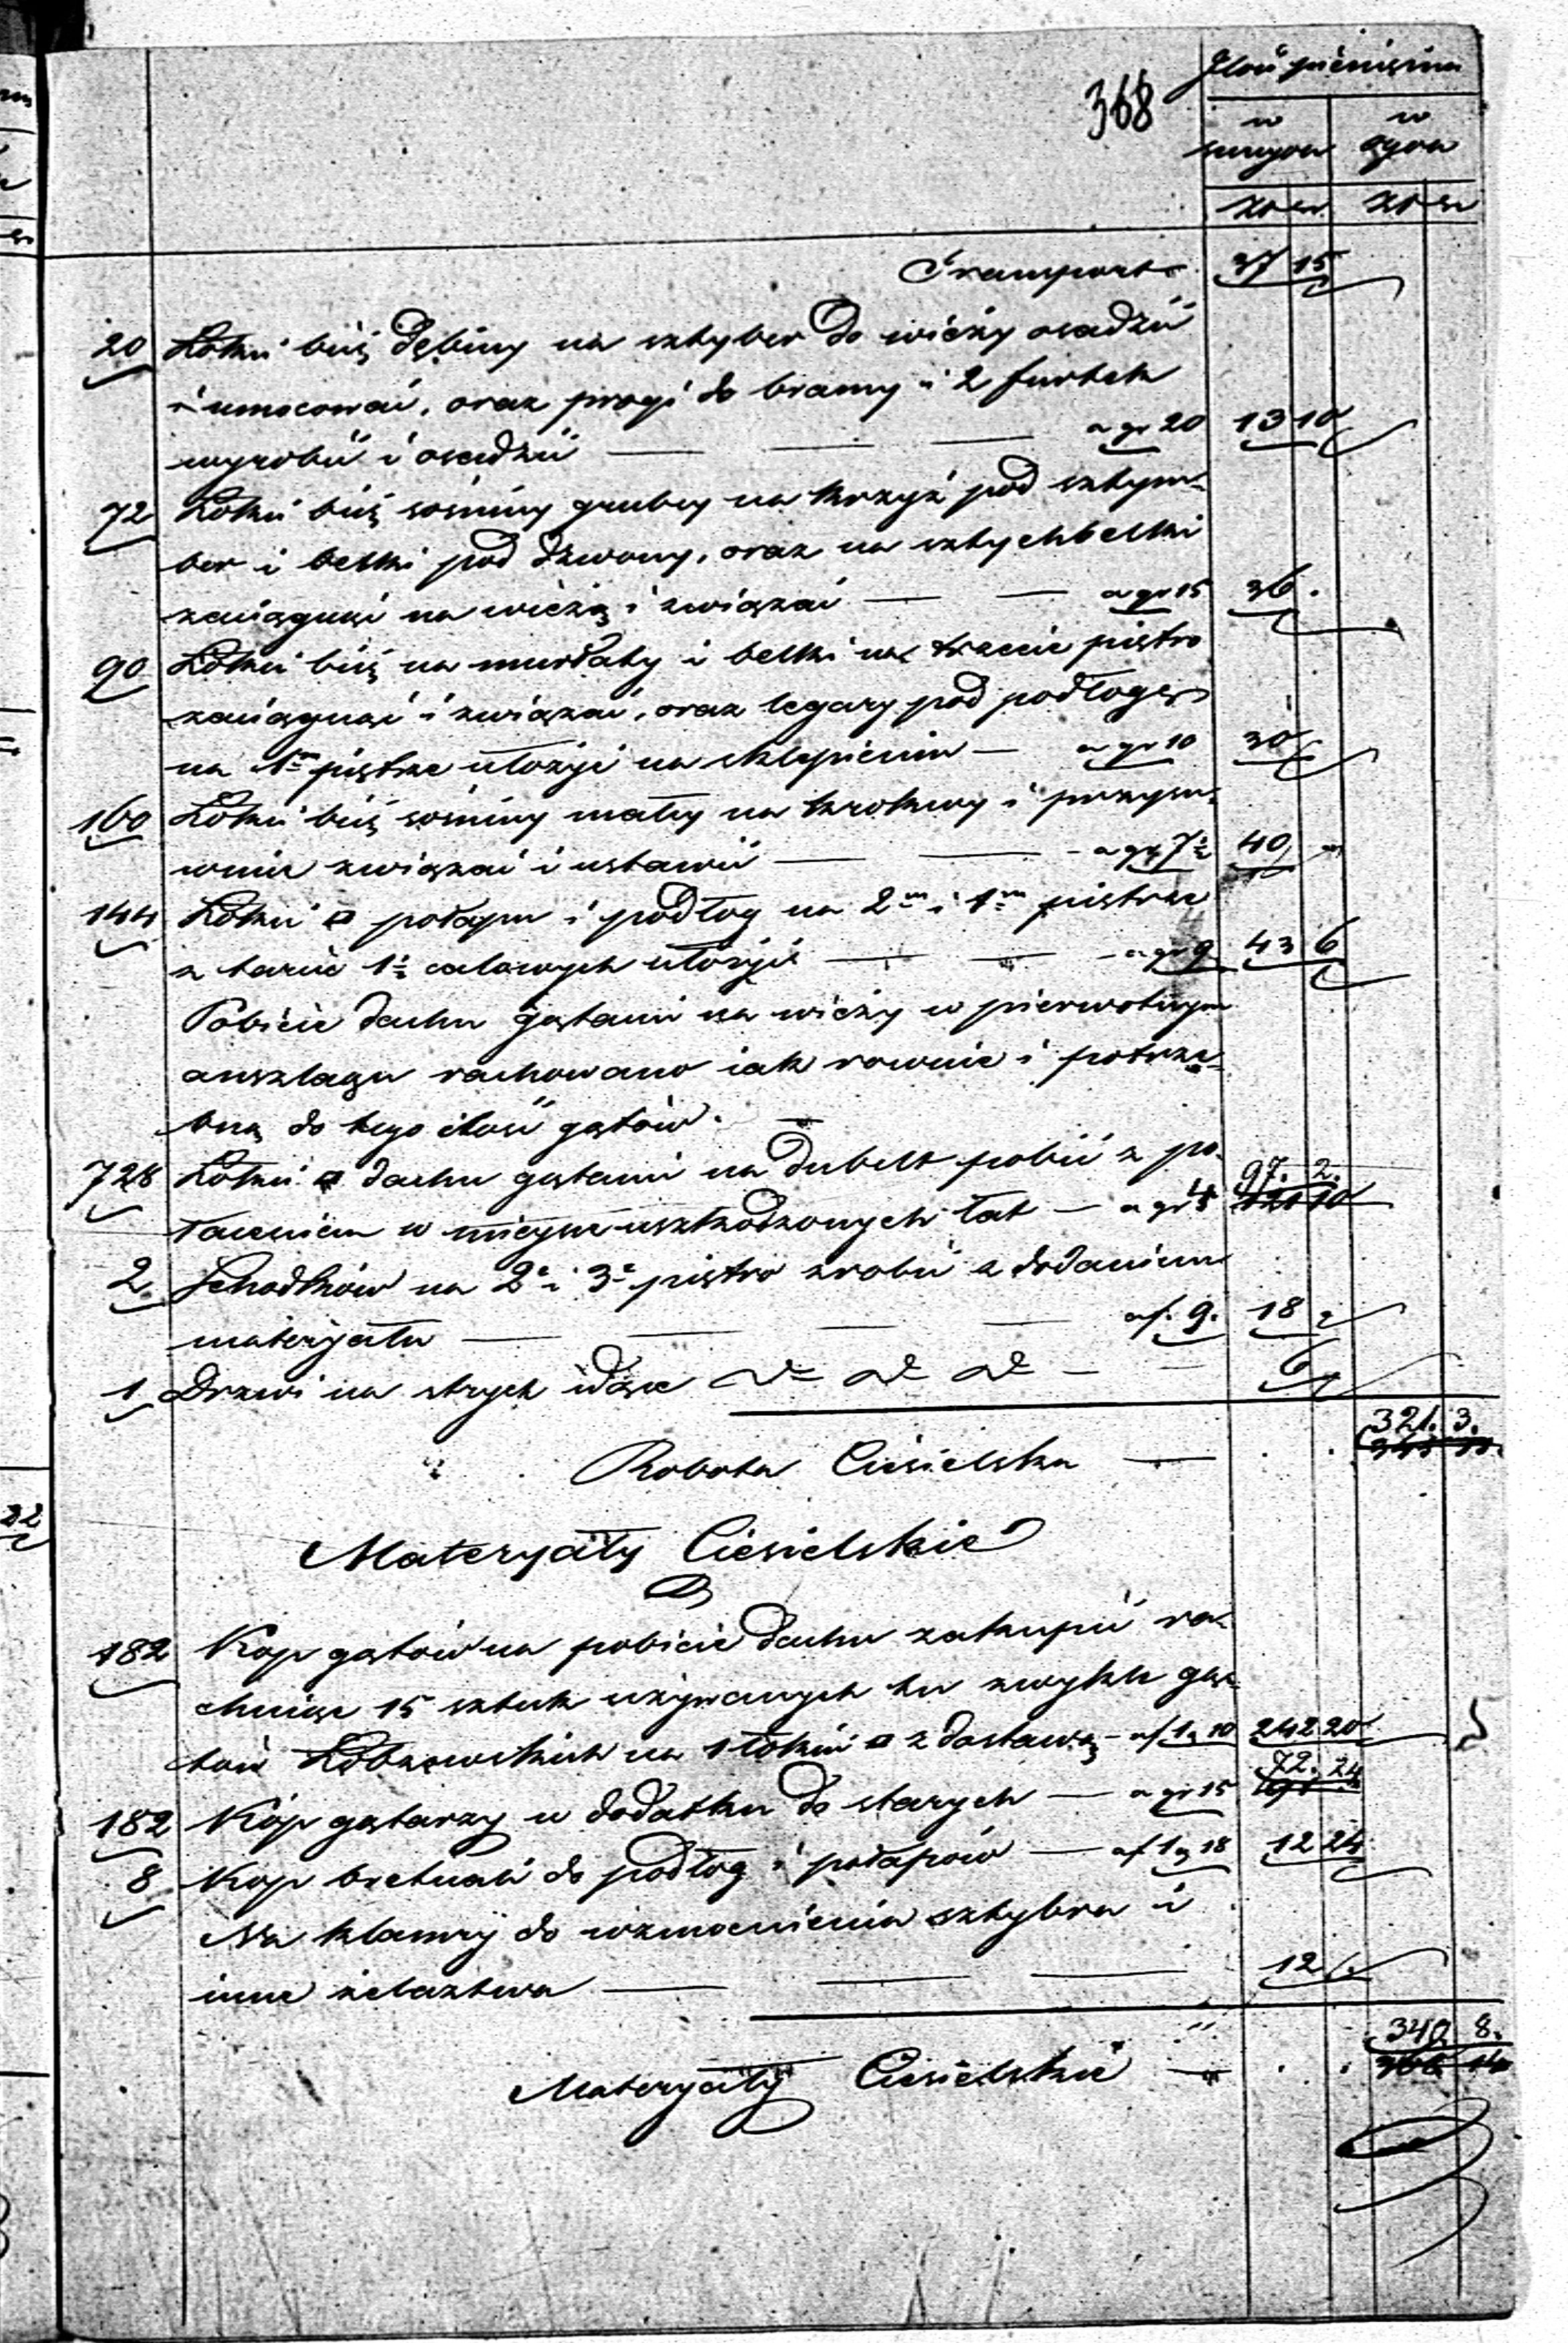 368
Ilość pieniężna
w summach w ogółe
Zł gr Zł gr
Transport 37 15
20 Łokci bież dębiny na sztyber do wieży osadzić
i umocować, oraz progi do bramy i 2 furtek
wyrobić i osadzić — — — a gr 20 13 10
72 Łokci bież sośniny grubey na krzyż pod sztym=
ber i belki pod dzwony, oraz na sztychbelki
zaciągnąć na wieżą i związać — — a gr 15 36 .
90 Łokci bież na murłaty i belki na trzecie piętro
zaciągnąć i związać, oraz legary pod podłogę
na 1m piętrze ułożyć na sklepieniu — a gr 10 30
160 Łokci bież sośniny małey na krokwy i przysu=
wnie związać i ustawić — — a gr 7½ 40
144 Łokci □ połapu i podłog na 2m i 1m piętrze
z tarcic 1½ calowych ułożyć — — a gr 9 43 6
Pobicie dachu gątami na wieży w pierwotnym
anszlagu rachowano iak rownie i potrze=
bną do tego ilość gątów. —
728 Łokci □ dachu gątami na dubelt pobić z po=
łaceniem w mieysce uszkodzonych łat — a gr 4 97. 2.
2 Schodków na 2e i 3e piętro zrobić z dodaniem
materyału — — — — a f. 9. 18
1 Drzwi na strych — 6
321. 3.
Robota Ciesielska —
Materyały Ciesielskie
182 Kop gątów na pobicie dachu zakupić ra=
chuiąc 15 sztuk używanych tu zwykle gą=
tów Łobzowskich na 1 łokci □ z dostawą — a f 1 g 10 242 20
182 Kóp gątarzy w dodatku do starych — a gr 15 72. 24
8 Kop bretnali do podłóg i połapów — a f 1 g 18 12 24
Na klamry do wzmocnienia sztybra i
inne żelaztwa — — — 12
340 8.
Materyały Ciesielskie —